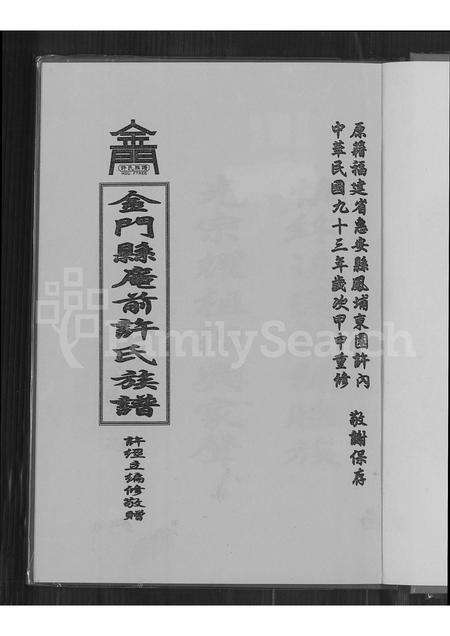 原籍福建省惠安縣鳳埔東園許內
中華民國九十三年歲次甲申重修 敬謝保存
金門
許氏族譜
金門縣庵前許氏族譜
許經立編修敬贈
FamilySearch